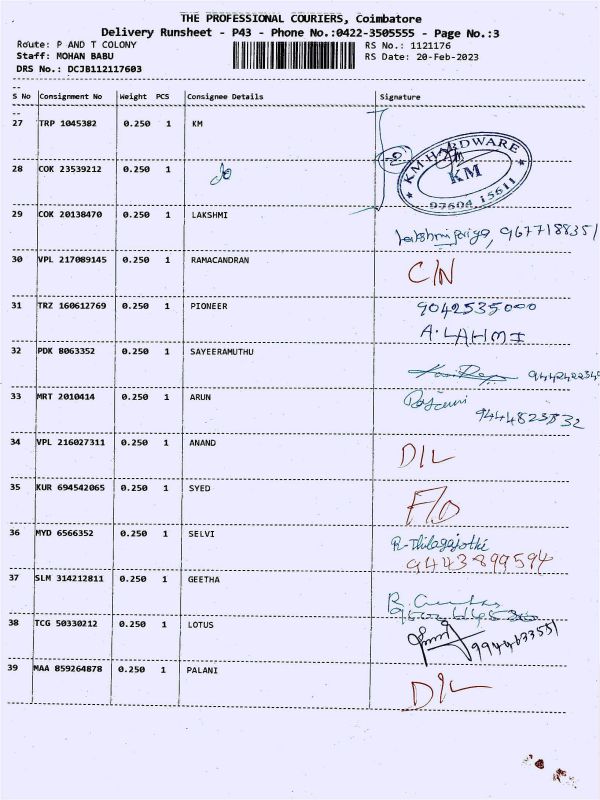 THE PROFESSIONAL COURIERS, Coimbatore
Delivery Runsheet - P43 - Phone No.:0422-3505555 - Page No.:3
Route: P AND T COLONY RS No.: 1121176
Staff: MOHAN BABU RS Date: 20-Feb-2023
DRS No.: DCJB112117603
S No Consignment No Weight PCS Consignee Details Signature
27 TRP 1045382 0.250 1 KM
KM HARDWARE
KM
97504 15611
28 COK 23539212 0.250 1 do
29 COK 20138470 0.250 1 LAKSHMI
9677188351
30 VPL 217089145 0.250 1 RAMACANDRAN C/N
31 TRZ 160612769 0.250 1 PIONEER 9042535000
A.LAHMI
32 PDK 8063352 0.250 1 SAYEERAMUTHU
33 MRT 2010414 0.250 1 ARUN
9444823832
34 VPL 216027311 0.250 1 ANAND D/L
35 KUR 694542065 0.250 1 SYED F/O
36 MYD 6566352 0.250 1 SELVI R-Thilagajothi
9443899594
37 SLM 314212811 0.250 1 GEETHA
38 TCG 50330212 0.250 1 LOTUS 9944633551
39 MAA 859264878 0.250 1 PALANI D/L